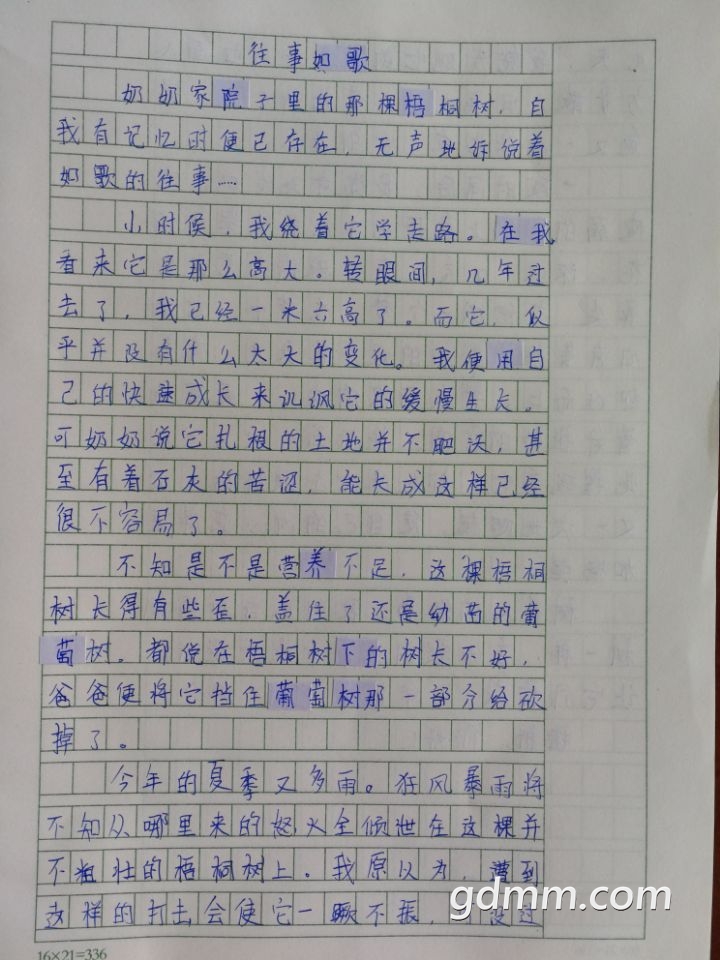 往事如歌
奶奶家院子里的那棵梧桐树，自
我有记忆时便已存在，无声地诉说着
如歌的往事……
小时候，我绕着它学走路。在我
看来它是那么高大。转眼间，几年过
去了，我已经一米六高了。而它，似
乎并没有什么太大的变化。我便用自
己的快速成长来讥讽它的缓慢生长。
可奶奶说它扎根的土地并不肥沃，甚
至有着石灰的苦涩，能长成这样已经
很不容易了。
不知是不是营养不足，这棵梧桐
树长得有些歪，盖住了还是幼苗的葡
萄树。都说在梧桐树下的树长不好，
爸爸便将它挡住葡萄树那一部分给砍
掉了。
今年的夏季又多雨。狂风暴雨将
不知从哪里来的怒火全倾泄在这棵并
不粗壮的梧桐树上。我原以为，遭到
这样的打击会使它一蹶不振，没过
16×21=336
gdmm.com